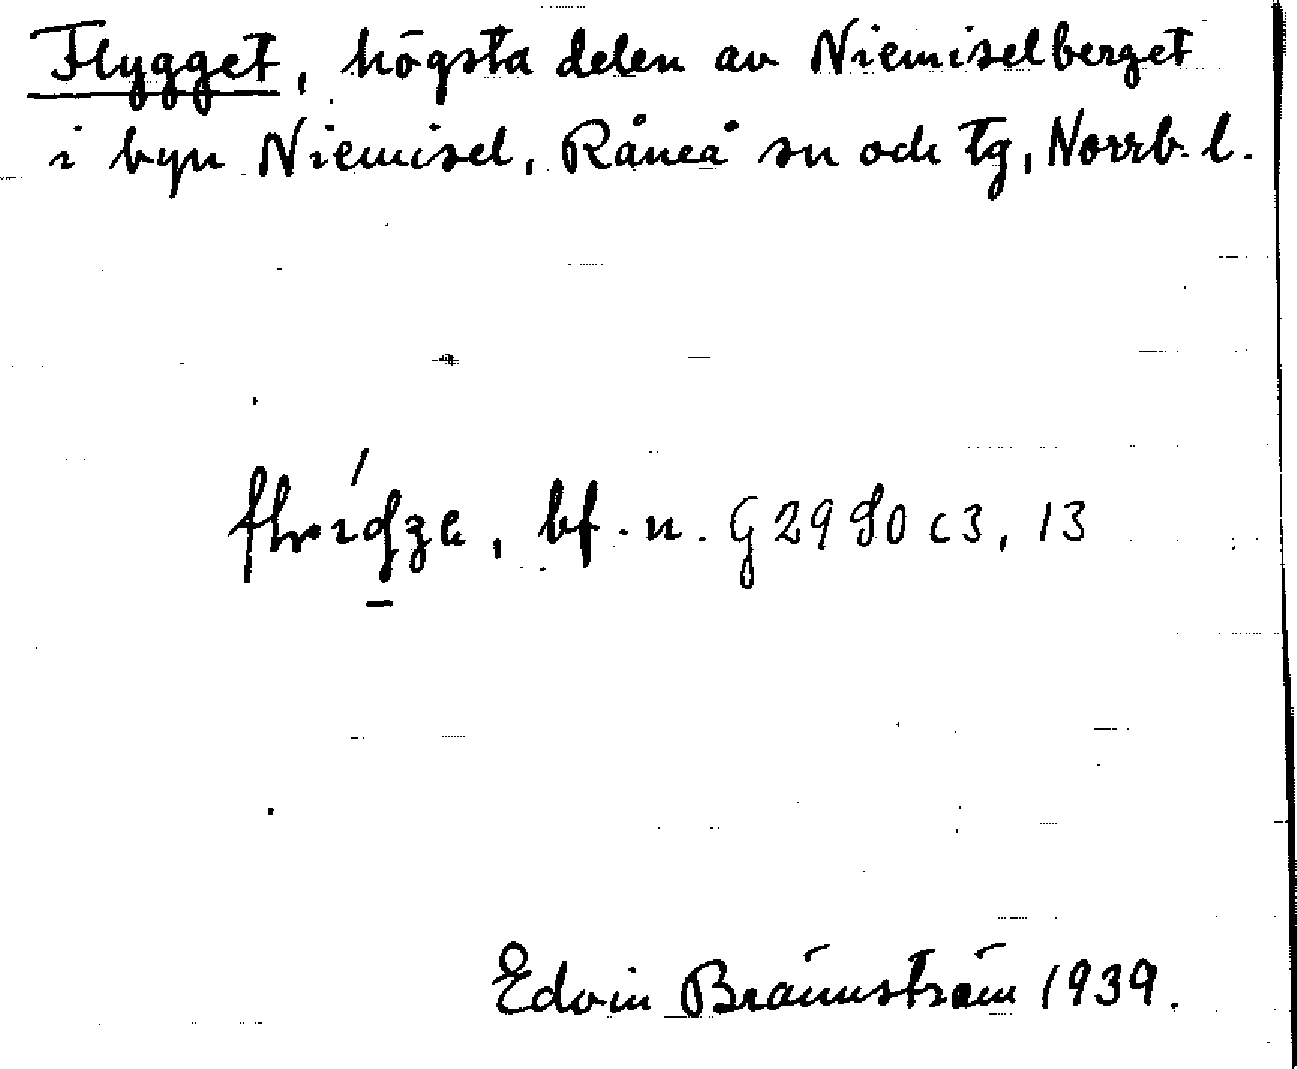 Flygget, högsta delen av Niemiselberget
i byn Niemisel, Råneå sn och tg, Norrb. l.
bf. n. G2980 c3, 13
Edvin Brännström 1939.